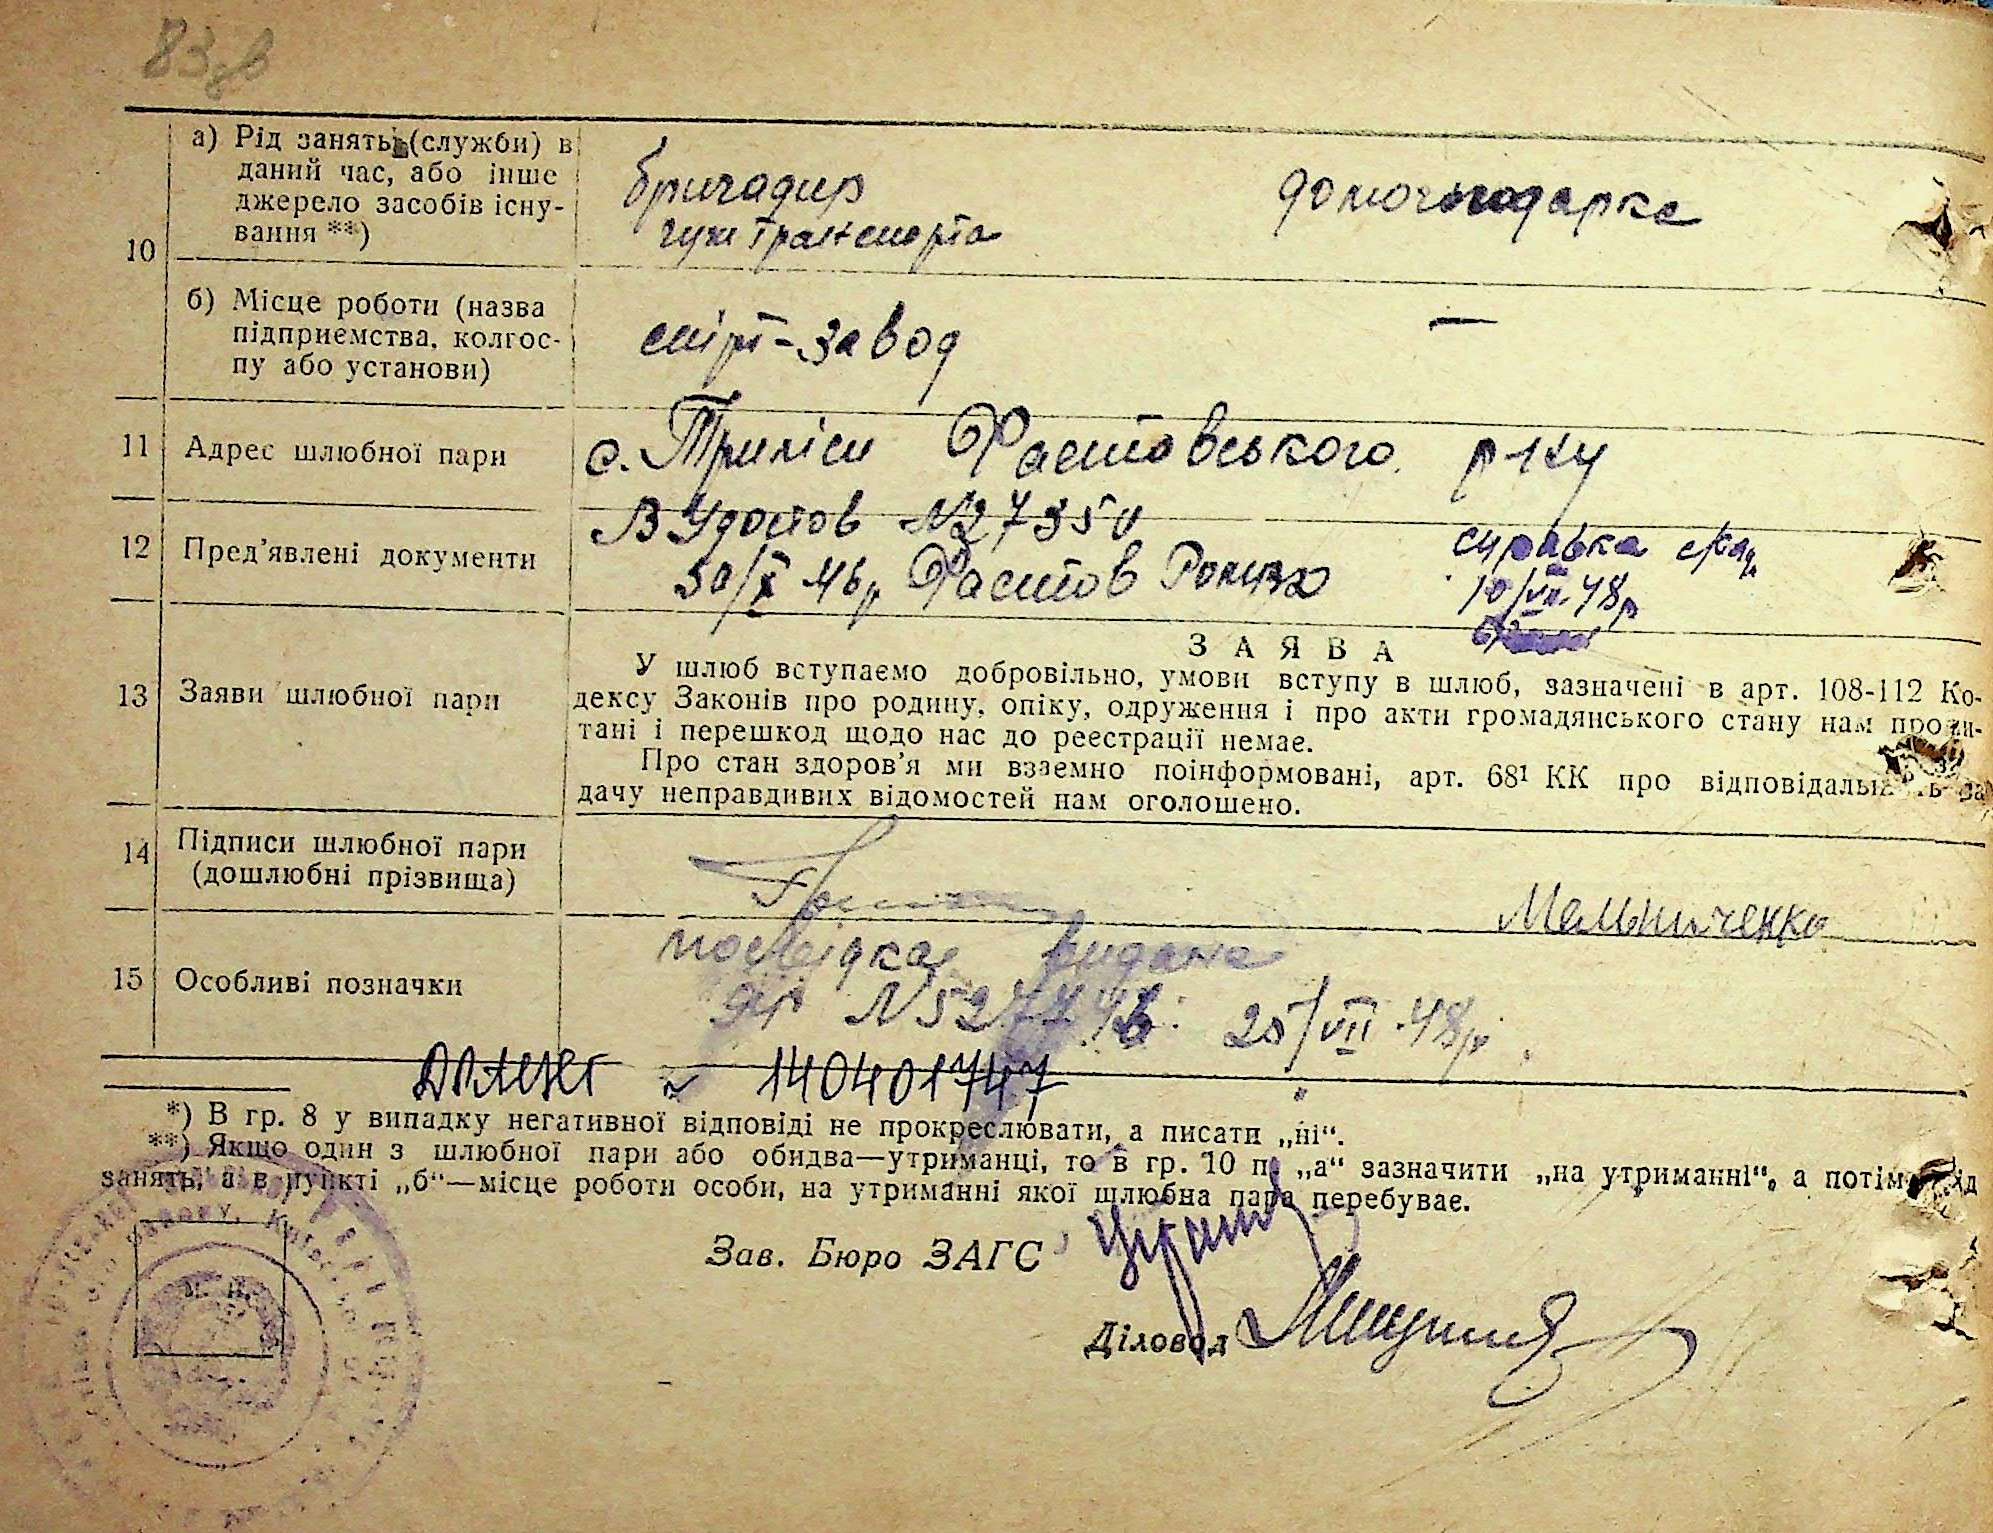 83
а) Рід занять (служби) в
даний час, або інше
джерело засобів існу-
вання **)
10
бригадир
гужтранспорта
домогосподарка
б) Місце роботи (назва
підприємства, колгос-
пу або установи)
спірт-завод
—
11 Адрес шлюбної пари
с. Триліси Фастовського р-ну
12 Пред’явлені документи
В Удостов №
30/X 46р. Фастов
справка
10/VII. 48р
13 Заяви шлюбної пари
ЗАЯВА
У шлюб вступаємо добровільно, умови вступу в шлюб, зазначені в арт. 108-112 Ко-
дексу Законів про родину, опіку, одруження і про акти громадянського стану нам прочи-
тані і перешкод щодо нас до реєстрації немає.
Про стан здоров’я ми взаємно поінформовані, арт. 68¹ КК про відповідальність за
дачу неправдивих відомостей нам оголошено.
14 Підписи шлюбної пари
(дошлюбні прізвища)
Мельниченко
15 Особливі позначки
посвідка видана
25/VII.48р.
ДРАЦСГ ~ 140401747
*) В гр. 8 у випадку негативної відповіді не прокреслювати, а писати „ні“.
**) Якщо один з шлюбної пари або обидва—утриманці, то в гр. 10 п. „а“ зазначити „на утриманні“, а потім рід
занять, а в пункті „б“—місце роботи особи, на утриманні якої шлюбна пара перебуває.
М. П.
Зав. Бюро ЗАГС
Діловод